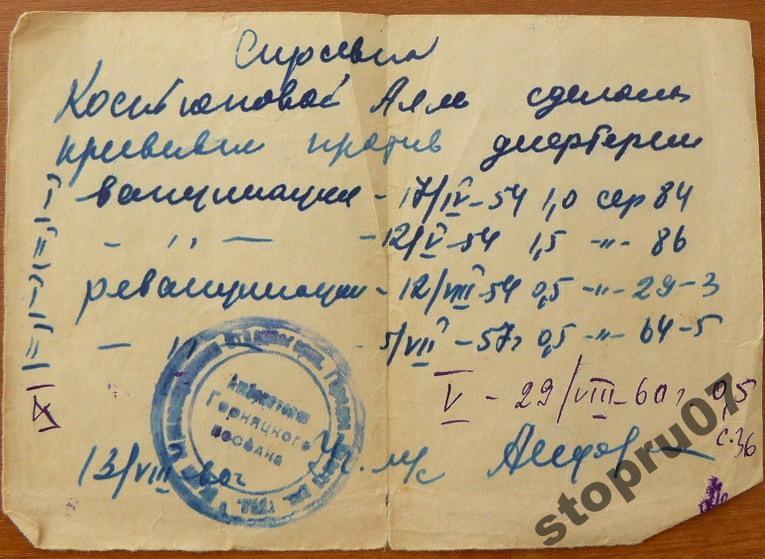 Справка
Костюковой Алле сделаны
прививки против дифтерии
вакцинация - 17/IV-54 1,0 сер 84
- " - - 12/V-54 1,5 -"- 86
ревакцинация - 12/VIII-54 0,5 -"- 29-3
- " - 5/VII-57г 0,5 -"- 64-5
V - 29/VIII-60г 0,5
с.36
13/VIII 60г
Амбулатория
Горняцкого
посёлка
stopru07